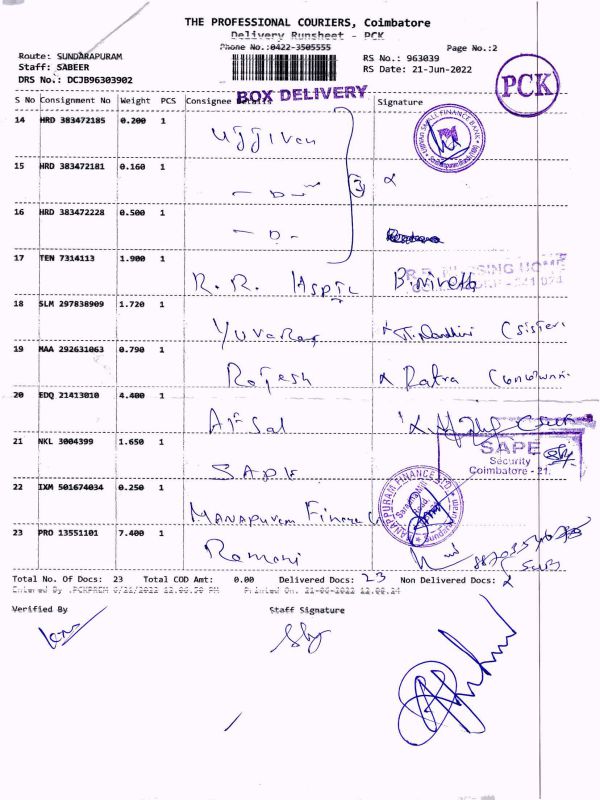 THE PROFESSIONAL COURIERS, Coimbatore
Delivery Runsheet - PCK
Phone No.:0422-3505555
Page No.:2
Route: SUNDARAPURAM
RS No.: 963039
Staff: SABEER
RS Date: 21-Jun-2022
DRS No.: DCJB96303902
PCK
BOX DELIVERY
S No Consignment No Weight PCS Consignee Details Signature
14 HRD 383472185 0.200 1 Ujjivan
15 HRD 383472181 0.160 1 - D -
3
16 HRD 383472228 0.500 1 - D -
17 TEN 7314113 1.900 1 R. R. Hspitl
NURSING HOME
18 SLM 297838909 1.720 1 Yuvaraj (Sister)
19 MAA 292631063 0.790 1 Rajesh
20 EDQ 21413010 4.400 1 Afsal
21 NKL 3004399 1.650 1 SAPE
SAPE
Security
Coimbatore - 21.
22 IXM 501674034 0.250 1 Manapuram Finance
23 PRO 13551101 7.400 1 Ramani
Total No. Of Docs: 23 Total COD Amt: 0.00 Delivered Docs: 23 Non Delivered Docs:
Entered By .PCKPRCM 6/21/2022 12.06.50 PM Printed On. 21-06-2022 12.08.24
Verified By Staff Signature